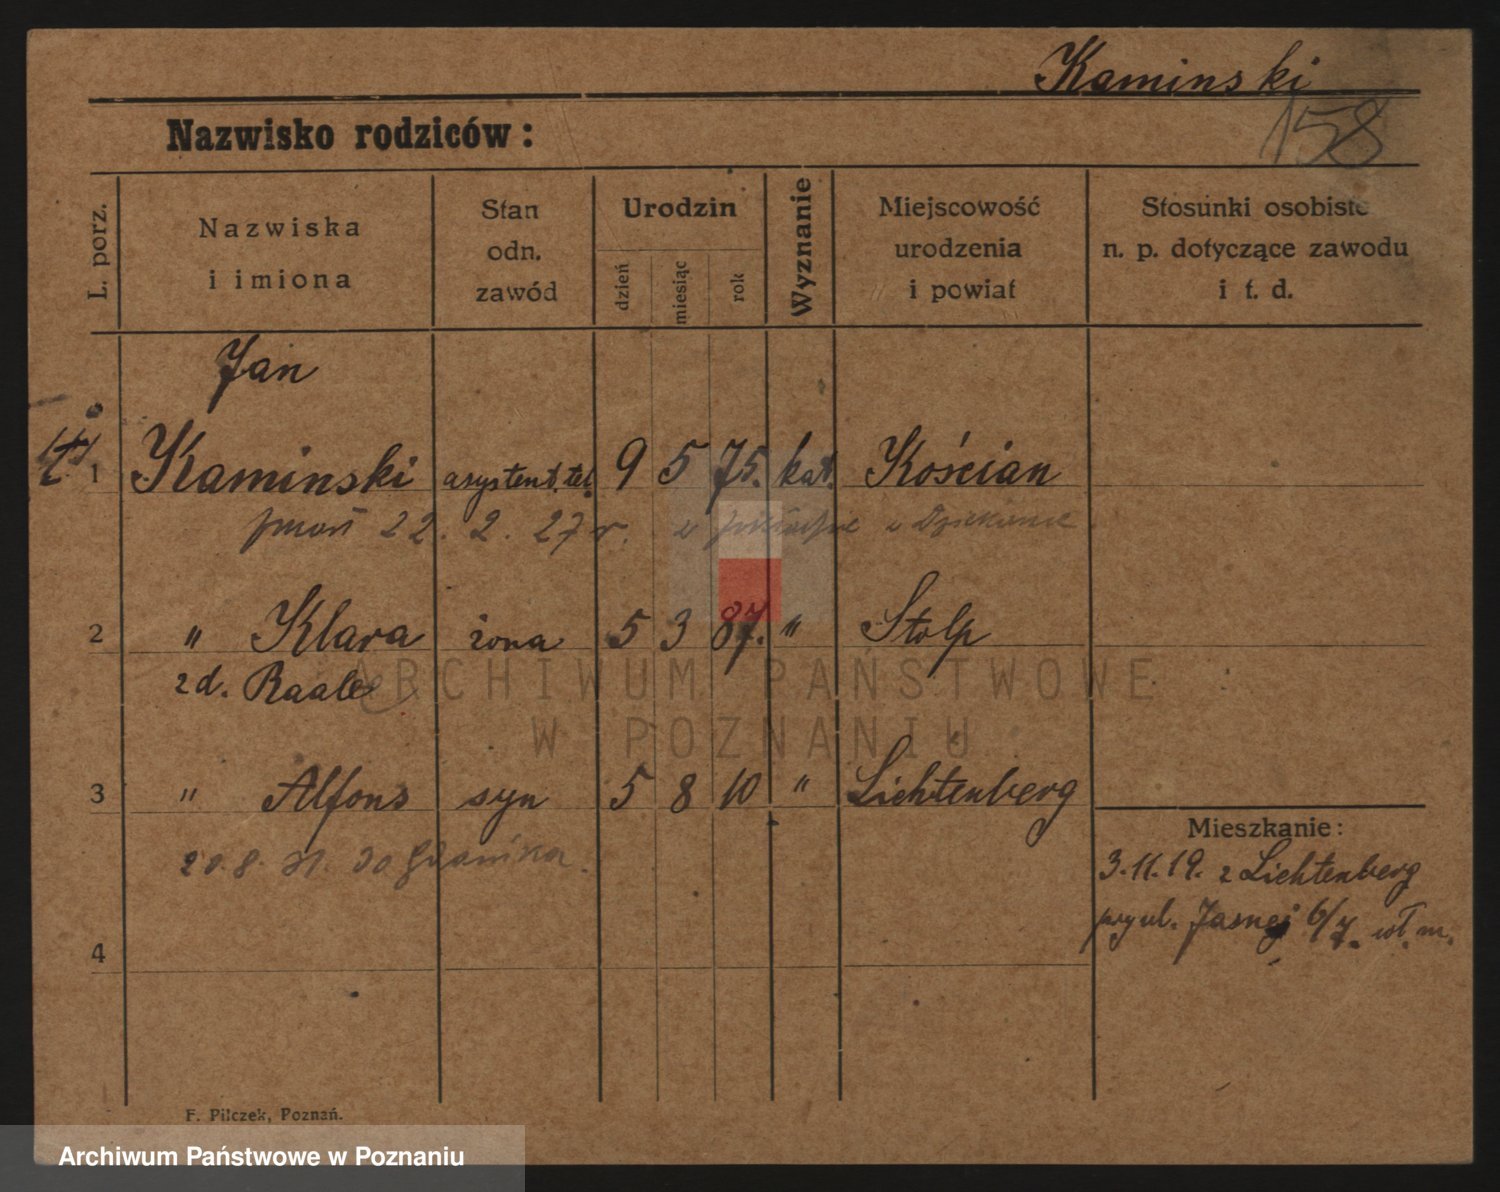 Kaminski
158
Nazwisko rodziców:
L. porz.
Nazwiska
i imiona
Stan
odn.
zawód
Urodzin
dzień
miesiąc
rok
Wyznanie
Miejscowość
urodzenia
i powiat
Stosunki osobiste
n. p. dotyczące zawodu
i t. d.
Jan
1 Kaminski asystent. tel. 9 5 75. kat. Kościan
22. 2. 27 r. w Dziekance
2 " Klara żona 5 3 87. " Stolp
z d. Raale
3 " Alfons syn 5 8 10 " Lichtenberg
20.8.31. do Gdańska.
4
Mieszkanie:
3.11.19. z Lichtenberg
przy ul. Jasnej 6/7. wł. m.
F. Pilczek, Poznań.
ARCHIWUM PAŃSTWOWE
W POZNANIU
Archiwum Państwowe w Poznaniu